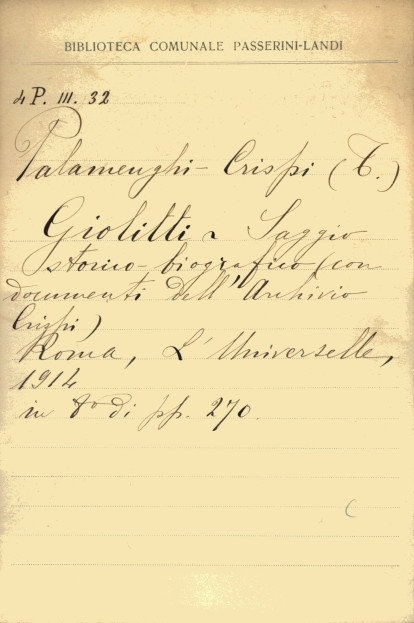 BIBLIOTECA COMUNALE PASSERINI-LANDI
4 P. III. 32
Palamenghi-Crispi (T.)
Giolitti ~ Saggio
storico-biografico (con
documenti dell'Archivio
Crispi)
Roma, L'Universelle,
1914
in 8° di pp. 270.